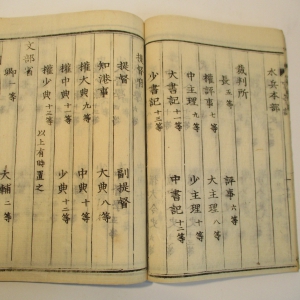 水兵本部
裁判所
長 五等
評事 六等
權評事 七等
大主理 八等
中主理 九等
少主理 十等
大書記 十一等
中書記 十二等
少書記 十三等
提督府
提督
副提督
知港事
大典 八等
權大典 九等
中典 十等
權中典 十一等
少典 十二等
權少典 十三等
以上有時置之
文部省
卿 一等
大輔 二等